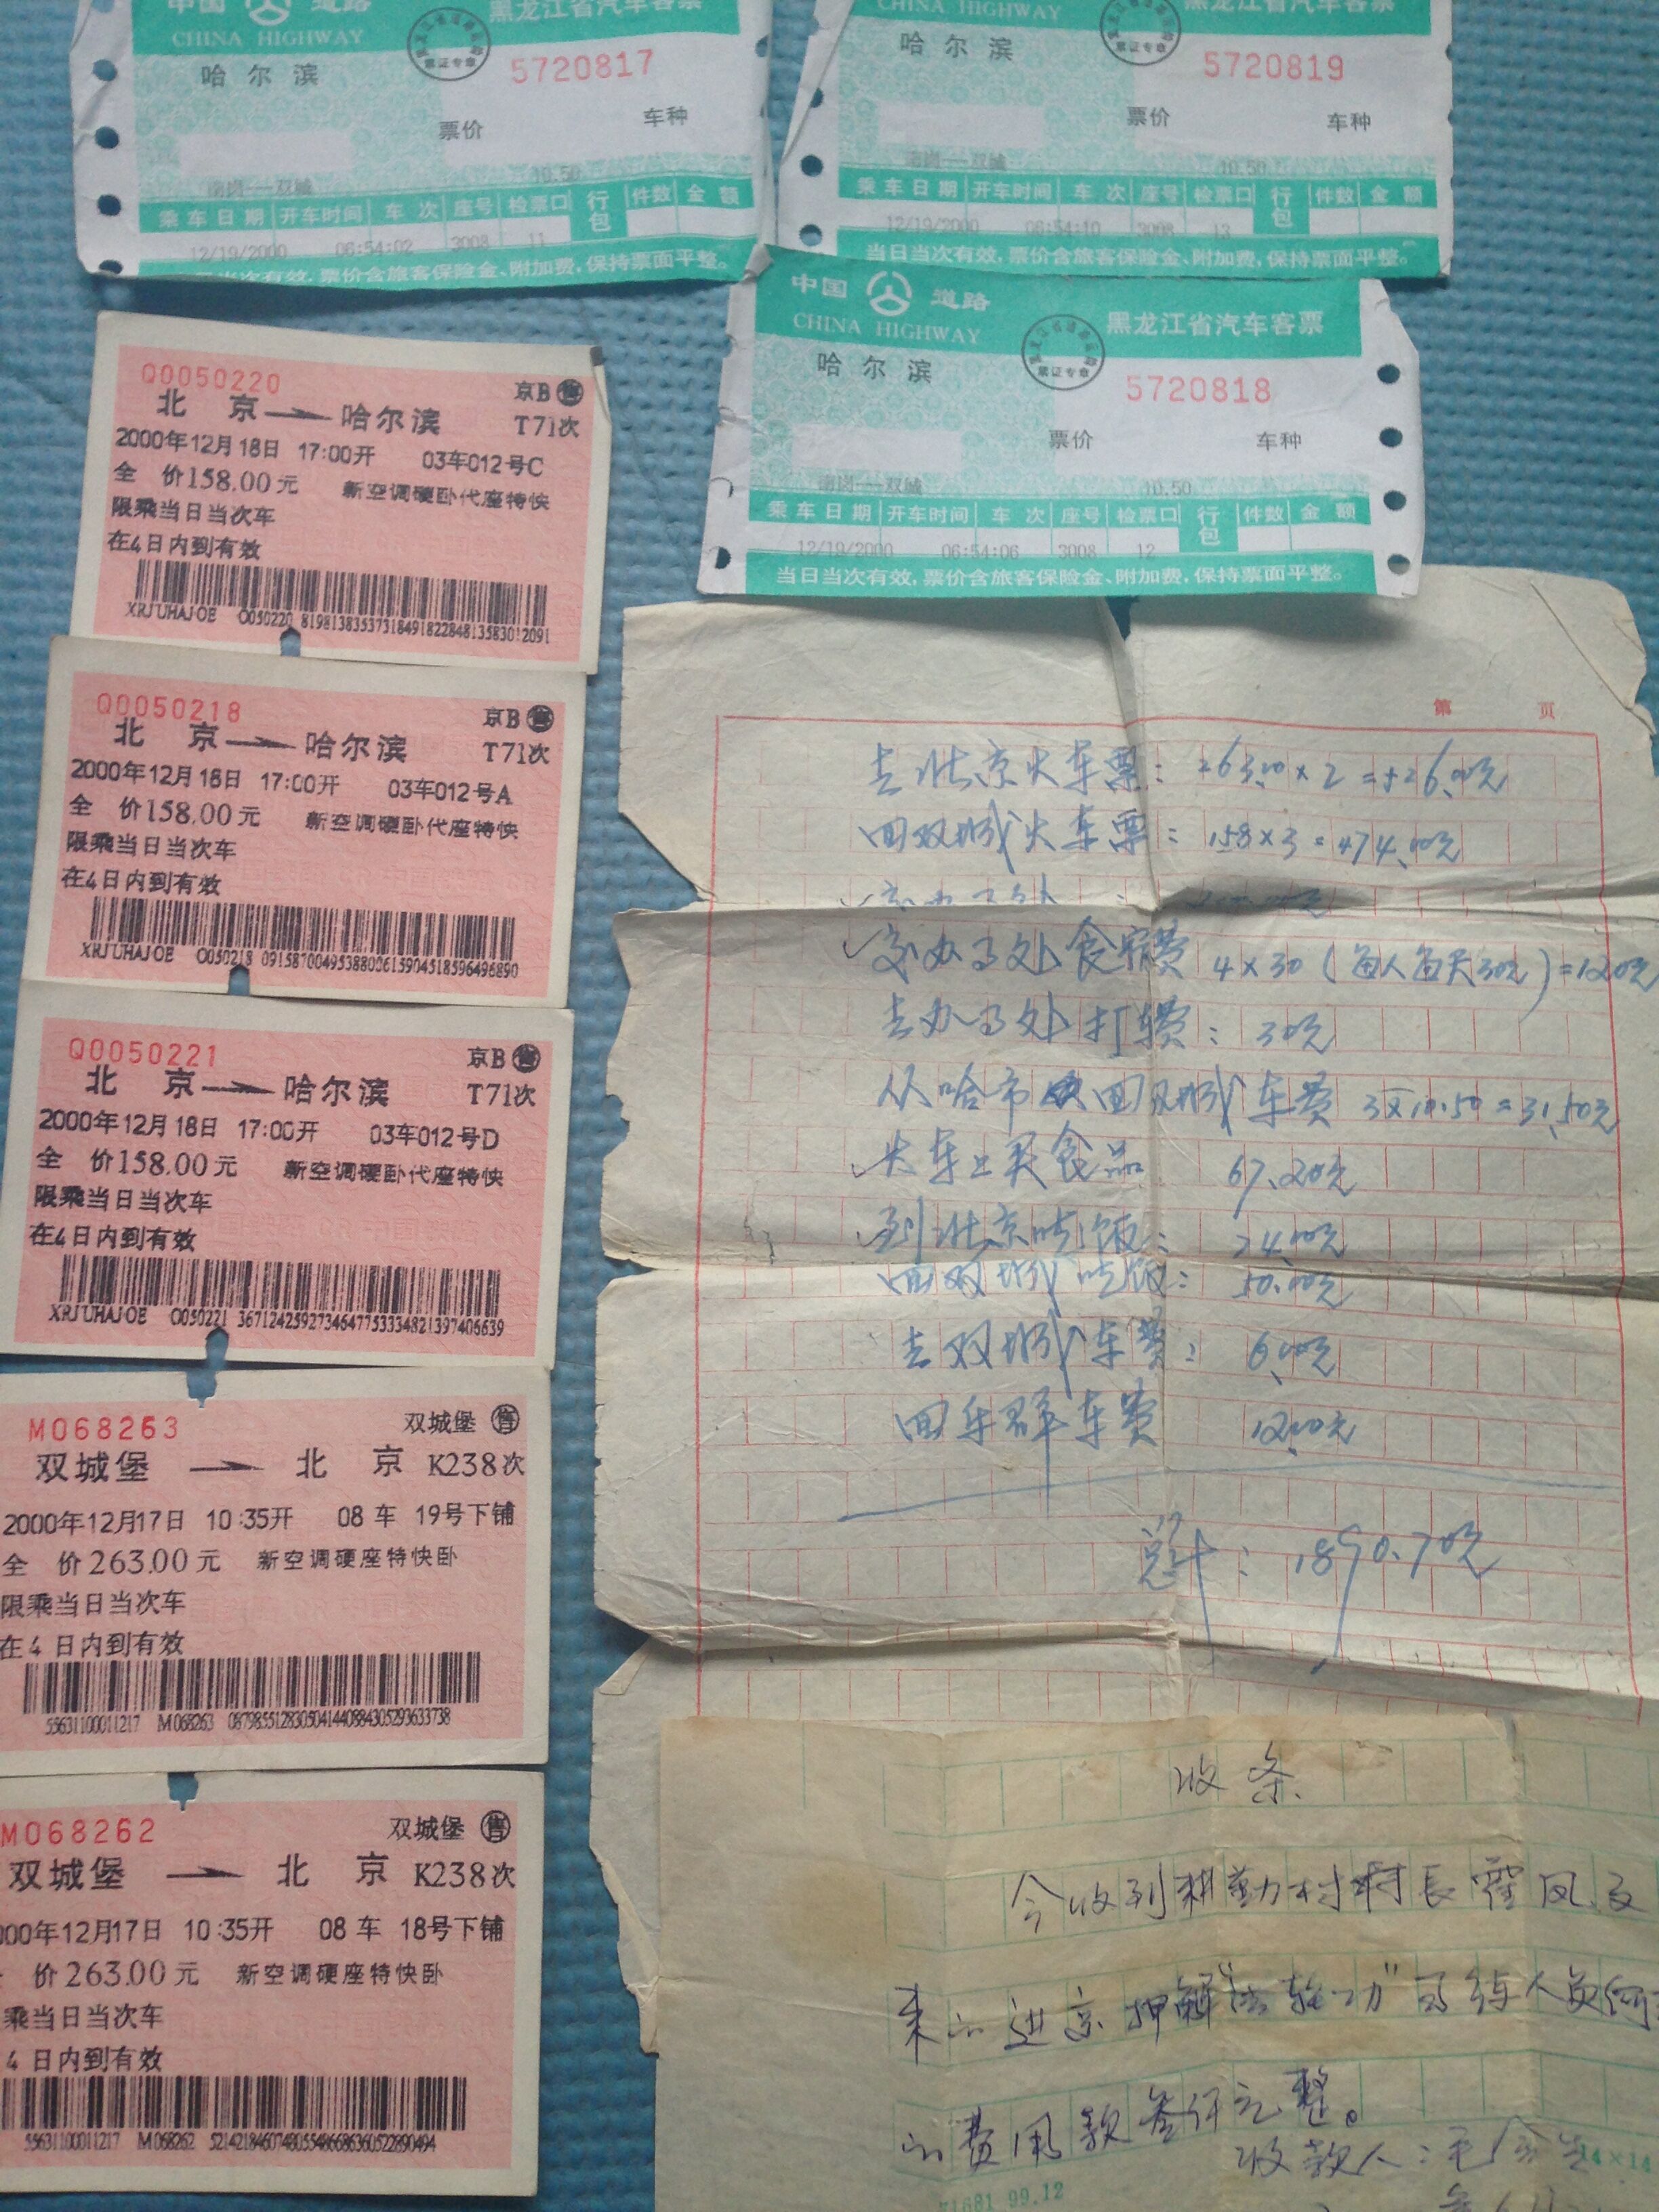 中国 道路
CHINA HIGHWAY
黑龙江省汽车客票
哈尔滨
票证专章
5720817
票价
车种
南岗---双城
10.50
乘车日期 开车时间 车次 座号 检票口 行包 件数 金额
12/19/2000 06:54:02 3008 11
当日当次有效,票价含旅客保险金、附加费,保持票面平整。
CHINA HIGHWAY
黑龙江省汽车客票
哈尔滨
票证专章
5720819
票价
车种
南岗---双城
10.50
乘车日期 开车时间 车次 座号 检票口 行包 件数 金额
12/19/2000 06:54:10 3008 13
当日当次有效,票价含旅客保险金、附加费,保持票面平整。
中国 道路
CHINA HIGHWAY
黑龙江省汽车客票
哈尔滨
票证专章
5720818
票价
车种
南岗---双城
10.50
乘车日期 开车时间 车次 座号 检票口 行包 件数 金额
12/19/2000 06:54:06 3008 12
当日当次有效,票价含旅客保险金、附加费,保持票面平整。
Q0050220
京B 售
北京 哈尔滨 T71次
2000年12月18日 17:00开 03车012号C
全 价158.00元 新空调硬卧代座特快
限乘当日当次车
在4日内到有效
XRJUHAJOE O050220 8198138353731849182284813583012091
Q0050218
京B 售
北京 哈尔滨 T71次
2000年12月18日 17:00开 03车012号A
全 价158.00元 新空调硬卧代座特快
限乘当日当次车
在4日内到有效
XRJUHAJOE O050218
Q0050221
京B 售
北京 哈尔滨 T71次
2000年12月18日 17:00开 03车012号D
全 价158.00元 新空调硬卧代座特快
限乘当日当次车
在4日内到有效
XRJUHAJOE O050221
M068263
双城堡 售
双城堡 北京 K238次
2000年12月17日 10:35开 08车 19号下铺
全 价263.00元 新空调硬座特快卧
限乘当日当次车
在4日内到有效
55631100011217 M068263
M068262
双城堡 售
双城堡 北京 K238次
000年12月17日 10:35开 08车 18号下铺
价263.00元 新空调硬座特快卧
乘当日当次车
4日内到有效
55631100011217 M068262
第 页
去北京火车票: 263.00×2=526.00元
回双城火车票: 158×3=474.00元
交办事处食宿费 4×30(每人每天30元)=120元
去办事处打车费: 30元
从哈市 回双城车费 3×10.50=31.50元
火车上买食品 67.20元
到北京吃饭: 24.00元
回双城吃饭: 50.00元
去双城车费: 6.00元
回乐群车费 12.00元
总计: 1890.70元
收条
今收到耕勤村村长霍凤友
来的进京押解"法轮功"习练人员何
的费用款叁仟元整。
收款人:
14×14
71681 99.12